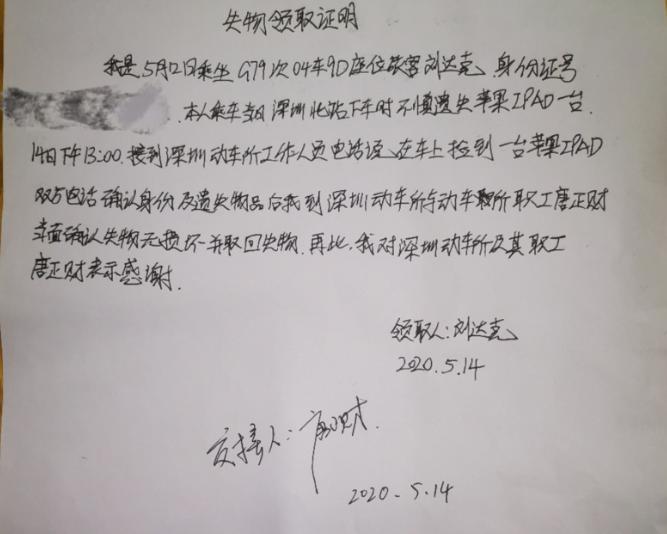 失物领取证明
我是5月12日乘坐G79次04车9D座位旅客刘达克，身份证号
本人乘车当日深圳北站下车时不慎遗失苹果IPAD一台.
14日下午13:00.接到深圳动车所工作人员电话说在车上捡到一台苹果IPAD
双方电话确认身份及遗失物品后我到深圳动车所与动车所职工唐正财
当面确认失物无损坏并取回失物.再此，我对深圳动车所及其职工
唐正财表示感谢.
领取人:刘达克
2020.5.14
交接人:唐正财
2020.5.14